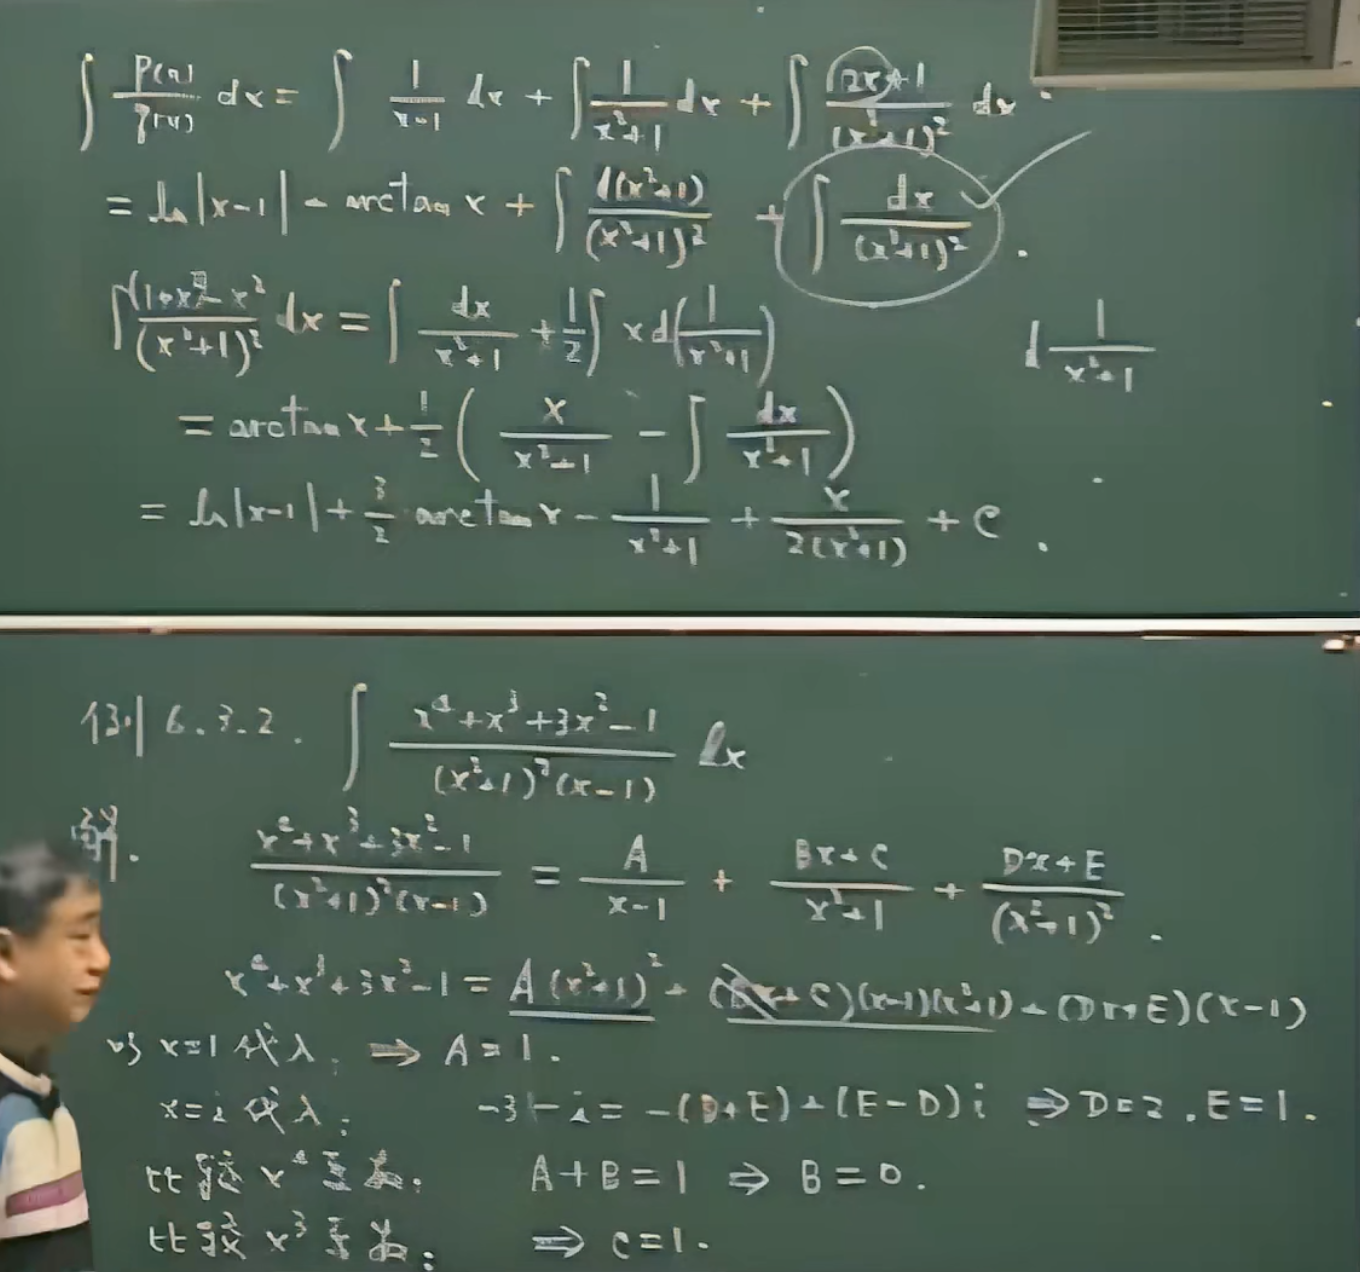 ∫ P(x)/q(x) dx = ∫ 1/(x-1) dx + ∫ 1/(x²+1) dx + ∫ (2x+1)/(x²+1)² dx.
= ln|x-1| + arctan x + ∫ d(x²+1)/(x²+1)² + ∫ dx/(x²+1)².
∫ (1+x²-x²)/(x²+1)² dx = ∫ dx/(x²+1) + 1/2 ∫ x d(1/(x²+1))
d 1/(x²+1)
= arctan x + 1/2 ( x/(x²+1) - ∫ dx/(x²+1) )
= ln|x-1| + 3/2 arctan x - 1/(x²+1) + x/(2(x²+1)) + C.
例 6.3.2. ∫ (x⁴+x³+3x²-1)/((x²+1)²(x-1)) dx
解. (x⁴+x³+3x²-1)/((x²+1)²(x-1)) = A/(x-1) + (Bx+C)/(x²+1) + (Dx+E)/(x²+1)².
x⁴+x³+3x²-1 = A(x²+1)² + (Bx+C)(x-1)(x²+1) + (Dx+E)(x-1)
以 x=1 代入, ⇒ A=1.
x=i 代入: -3-i = -(D+E)+(E-D)i ⇒ D=2, E=1.
比较 x⁴ 系数: A+B=1 ⇒ B=0.
比较 x³ 系数: ⇒ C=1.